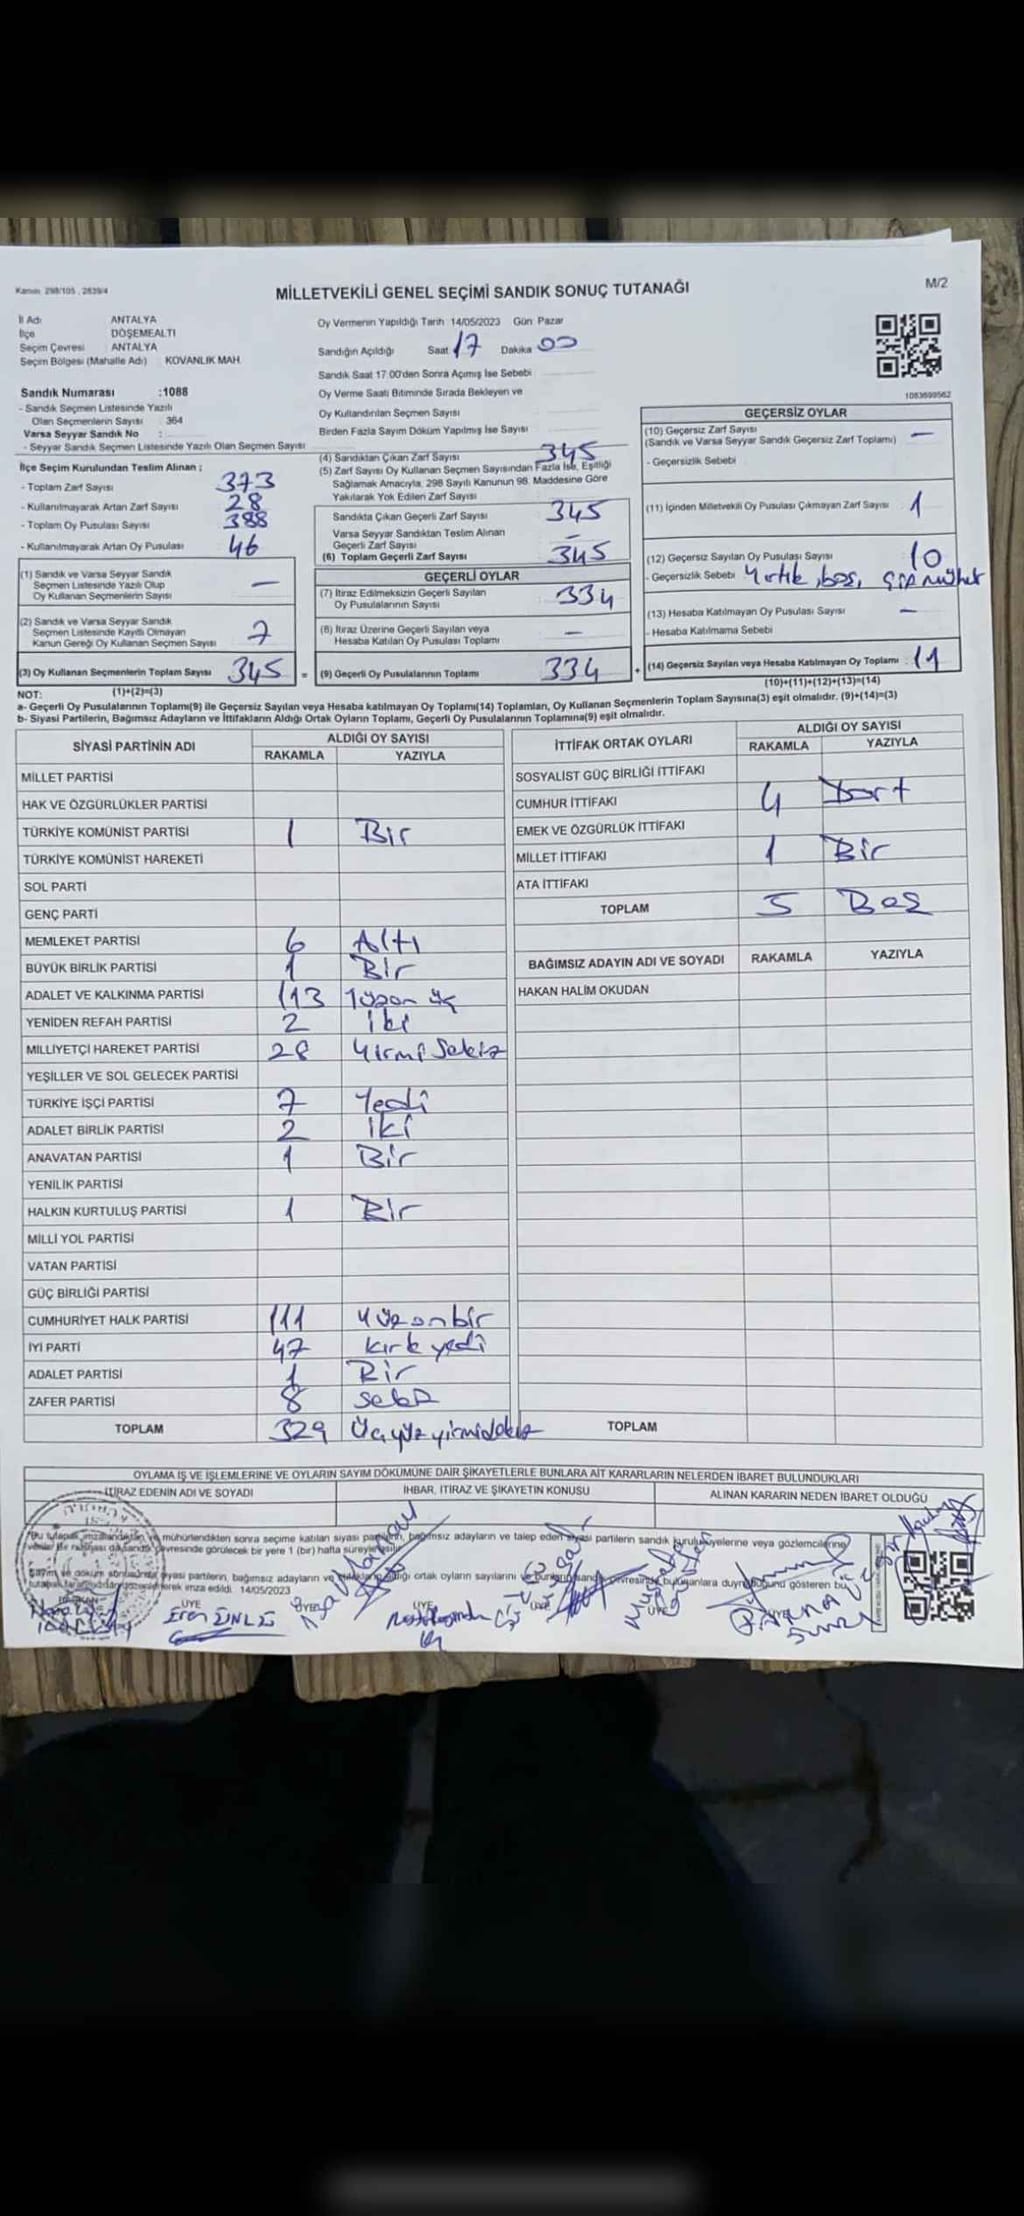 Kanun: 298/105 , 2839/4
MİLLETVEKİLİ GENEL SEÇİMİ SANDIK SONUÇ TUTANAĞI
M/2
İl Adı ANTALYA
İlçe DÖŞEMEALTI
Seçim Çevresi ANTALYA
Seçim Bölgesi (Mahalle Adı) KOVANLIK MAH.
Sandık Numarası :1088
- Sandık Seçmen Listesinde Yazılı
Olan Seçmenlerin Sayısı : 364
Varsa Seyyar Sandık No :
- Seyyar Sandık Seçmen Listesinde Yazılı Olan Seçmen Sayısı
İlçe Seçim Kurulundan Teslim Alınan ;
- Toplam Zarf Sayısı 373
- Kullanılmayarak Artan Zarf Sayısı 28
- Toplam Oy Pusulası Sayısı 388
- Kullanılmayarak Artan Oy Pusulası 46
(1) Sandık ve Varsa Seyyar Sandık
Seçmen Listesinde Yazılı Olup
Oy Kullanan Seçmenlerin Sayısı —
(2) Sandık ve Varsa Seyyar Sandık
Seçmen Listesinde Kayıtlı Olmayan
Kanun Gereği Oy Kullanan Seçmen Sayısı 7
(3) Oy Kullanan Seçmenlerin Toplam Sayısı 345 =
(1)+(2)=(3)
Oy Vermenin Yapıldığı Tarih 14/05/2023 Gün Pazar
Sandığın Açıldığı Saat 17 Dakika 00
Sandık Saat 17.00'den Sonra Açımış İse Sebebi
Oy Verme Saati Bitiminde Sırada Bekleyen ve
Oy Kullandırılan Seçmen Sayısı
Birden Fazla Sayım Döküm Yapılmış İse Sayısı
(4) Sandıktan Çıkan Zarf Sayısı 345
(5) Zarf Sayısı Oy Kullanan Seçmen Sayısından Fazla İse, Eşitliği
Sağlamak Amacıyla, 298 Sayılı Kanunun 98. Maddesine Göre
Yakılarak Yok Edilen Zarf Sayısı
Sandıkta Çıkan Geçerli Zarf Sayısı 345
Varsa Seyyar Sandıktan Teslim Alınan
Geçerli Zarf Sayısı –
(6) Toplam Geçerli Zarf Sayısı 345
GEÇERLİ OYLAR
(7) İtiraz Edilmeksizin Geçerli Sayılan
Oy Pusulalarının Sayısı 334
(8) İtiraz Üzerine Geçerli Sayılan veya
Hesaba Katılan Oy Pusulası Toplamı —
(9) Geçerli Oy Pusulalarının Toplamı 334 +
1083699562
GEÇERSİZ OYLAR
(10) Geçersiz Zarf Sayısı
(Sandık ve Varsa Seyyar Sandık Geçersiz Zarf Toplamı) —
- Geçersizlik Sebebi
(11) İçinden Milletvekili Oy Pusulası Çıkmayan Zarf Sayısı 1
(12) Geçersiz Sayılan Oy Pusulası Sayısı 10
- Geçersizlik Sebebi Yırtık, boş,
(13) Hesaba Katılmayan Oy Pusulası Sayısı –
- Hesaba Katılmama Sebebi
(14) Geçersiz Sayılan veya Hesaba Katılmayan Oy Toplamı : 11
(10)+(11)+(12)+(13)=(14)
NOT:
a- Geçerli Oy Pusulalarının Toplamı(9) ile Geçersiz Sayılan veya Hesaba katılmayan Oy Toplamı(14) Toplamları, Oy Kullanan Seçmenlerin Toplam Sayısına(3) eşit olmalıdır. (9)+(14)=(3)
b- Siyasi Partilerin, Bağımsız Adayların ve İttifakların Aldığı Ortak Oyların Toplamı, Geçerli Oy Pusulalarının Toplamına(9) eşit olmalıdır.
SİYASİ PARTİNİN ADI ALDIĞI OY SAYISI
RAKAMLA YAZIYLA
MİLLET PARTİSİ
HAK VE ÖZGÜRLÜKLER PARTİSİ
TÜRKİYE KOMÜNİST PARTİSİ 1 Bir
TÜRKİYE KOMÜNİST HAREKETİ
SOL PARTİ
GENÇ PARTİ
MEMLEKET PARTİSİ 6 Altı
BÜYÜK BİRLİK PARTİSİ 1 Bir
ADALET VE KALKINMA PARTİSİ 113 Yüzon üç
YENİDEN REFAH PARTİSİ 2 iki
MİLLİYETÇİ HAREKET PARTİSİ 28 Yirmi Sekiz
YEŞİLLER VE SOL GELECEK PARTİSİ
TÜRKİYE İŞÇİ PARTİSİ 7 Yedi
ADALET BİRLİK PARTİSİ 2 iki
ANAVATAN PARTİSİ 1 Bir
YENİLİK PARTİSİ
HALKIN KURTULUŞ PARTİSİ 1 Bir
MİLLİ YOL PARTİSİ
VATAN PARTİSİ
GÜÇ BİRLİĞİ PARTİSİ
CUMHURİYET HALK PARTİSİ 111 Yüzonbir
İYİ PARTİ 47 kırk yedi
ADALET PARTİSİ 1 Bir
ZAFER PARTİSİ 8 sekiz
TOPLAM 329
İTTİFAK ORTAK OYLARI ALDIĞI OY SAYISI
RAKAMLA YAZIYLA
SOSYALİST GÜÇ BİRLİĞİ İTTİFAKI
CUMHUR İTTİFAKI 4 Dört
EMEK VE ÖZGÜRLÜK İTTİFAKI
MİLLET İTTİFAKI 1 Bir
ATA İTTİFAKI
TOPLAM 5 Beş
BAĞIMSIZ ADAYIN ADI VE SOYADI RAKAMLA YAZIYLA
HAKAN HALİM OKUDAN
TOPLAM
OYLAMA İŞ VE İŞLEMLERİNE VE OYLARIN SAYIM DÖKÜMÜNE DAİR ŞİKAYETLERLE BUNLARA AİT KARARLARIN NELERDEN İBARET BULUNDUKLARI
İTİRAZ EDENİN ADI VE SOYADI İHBAR, İTİRAZ VE ŞİKAYETİN KONUSU ALINAN KARARIN NEDEN İBARET OLDUĞU
mühürlendikten sonra seçime katılan siyasi partilerin, bağımsız adayların ve talep eden siyasi partilerin sandık kurulu üyelerine veya gözlemcilerine
çevresinde görülecek bir yere 1 (bir) hafta süreyle
siyasi partilerin, bağımsız adayların ve aldığı ortak oyların sayılarını ve bunların sandık çevresinde bulunanlara duyrulduğunu gösteren bu
imza edildi. 14/05/2023
ÜYE ÜYE ÜYE ÜYE ÜYE